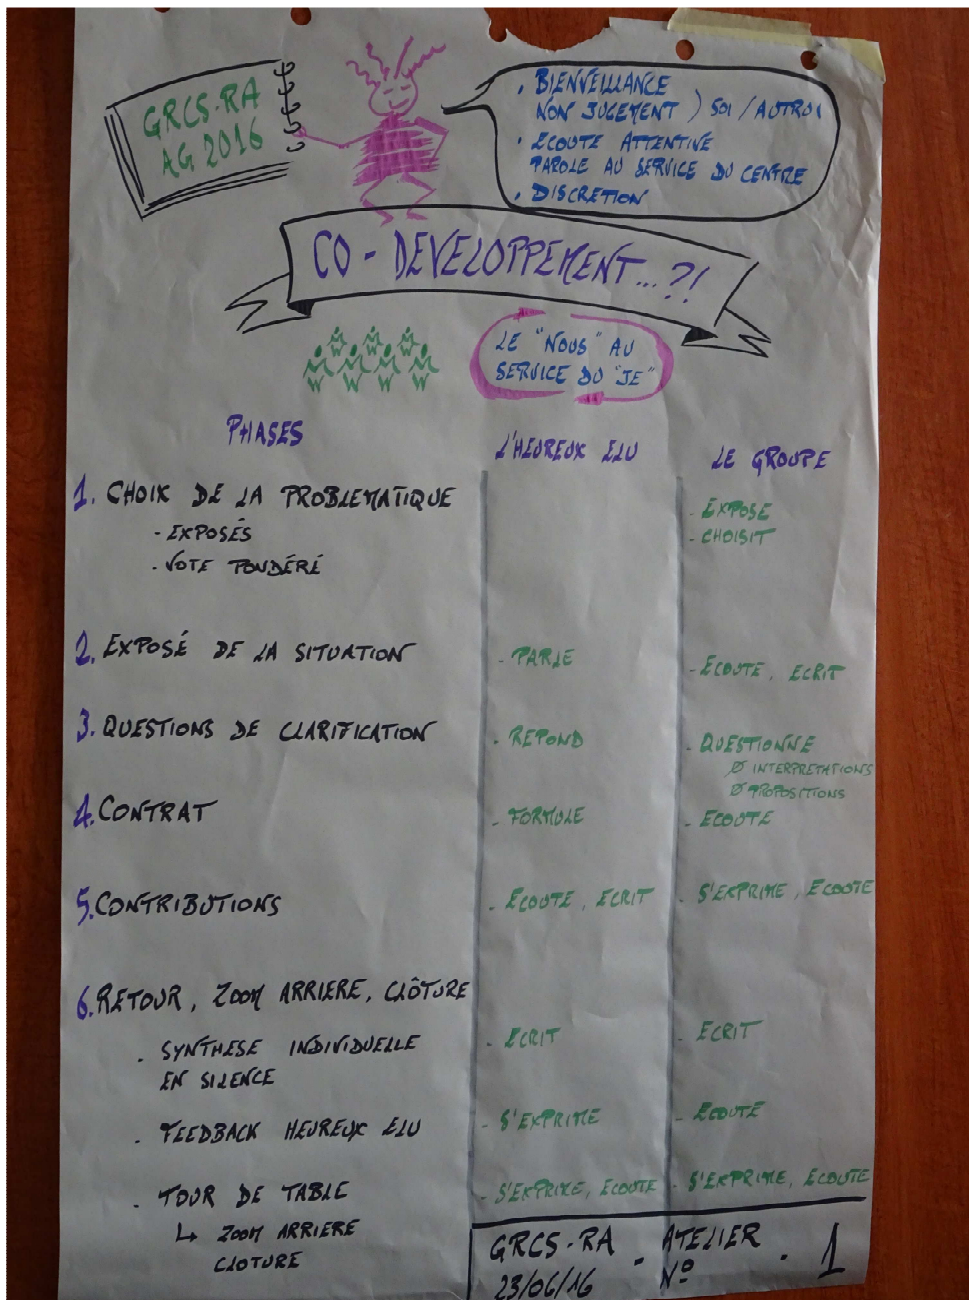 GRCS-RA
AG 2016
. BIENVEILLANCE
NON JUGEMENT ) SOI / AUTRUI
. ECOUTE ATTENTIVE
PAROLE AU SERVICE DU CENTRE
. DISCRETION
CO - DEVELOPPEMENT...?!
LE "NOUS" AU
SERVICE DU "JE"
PHASES
L'HEUREUX ELU
LE GROUPE
1. CHOIX DE LA PROBLEMATIQUE
- EXPOSÉS
- VOTE PONDÉRÉ
- EXPOSE
- CHOISIT
2. EXPOSÉ DE LA SITUATION
- PARLE
- ECOUTE, ECRIT
3. QUESTIONS DE CLARIFICATION
- REPOND
- QUESTIONNE
Ø INTERPRETATIONS
Ø PROPOSITIONS
4. CONTRAT
- FORMULE
- ECOUTE
5. CONTRIBUTIONS
- ECOUTE, ECRIT
- S'EXPRIME, ECOUTE
6. RETOUR, ZOOM ARRIERE, CLÔTURE
. SYNTHESE INDIVIDUELLE
EN SILENCE
- ECRIT
- ECRIT
. FEEDBACK HEUREUX ELU
- S'EXPRIME
- ECOUTE
. TOUR DE TABLE
↳ ZOOM ARRIERE
CLOTURE
- S'EXPRIME, ECOUTE
- S'EXPRIME, ECOUTE
GRCS-RA - ATELIER - 1
23/06/16 N°